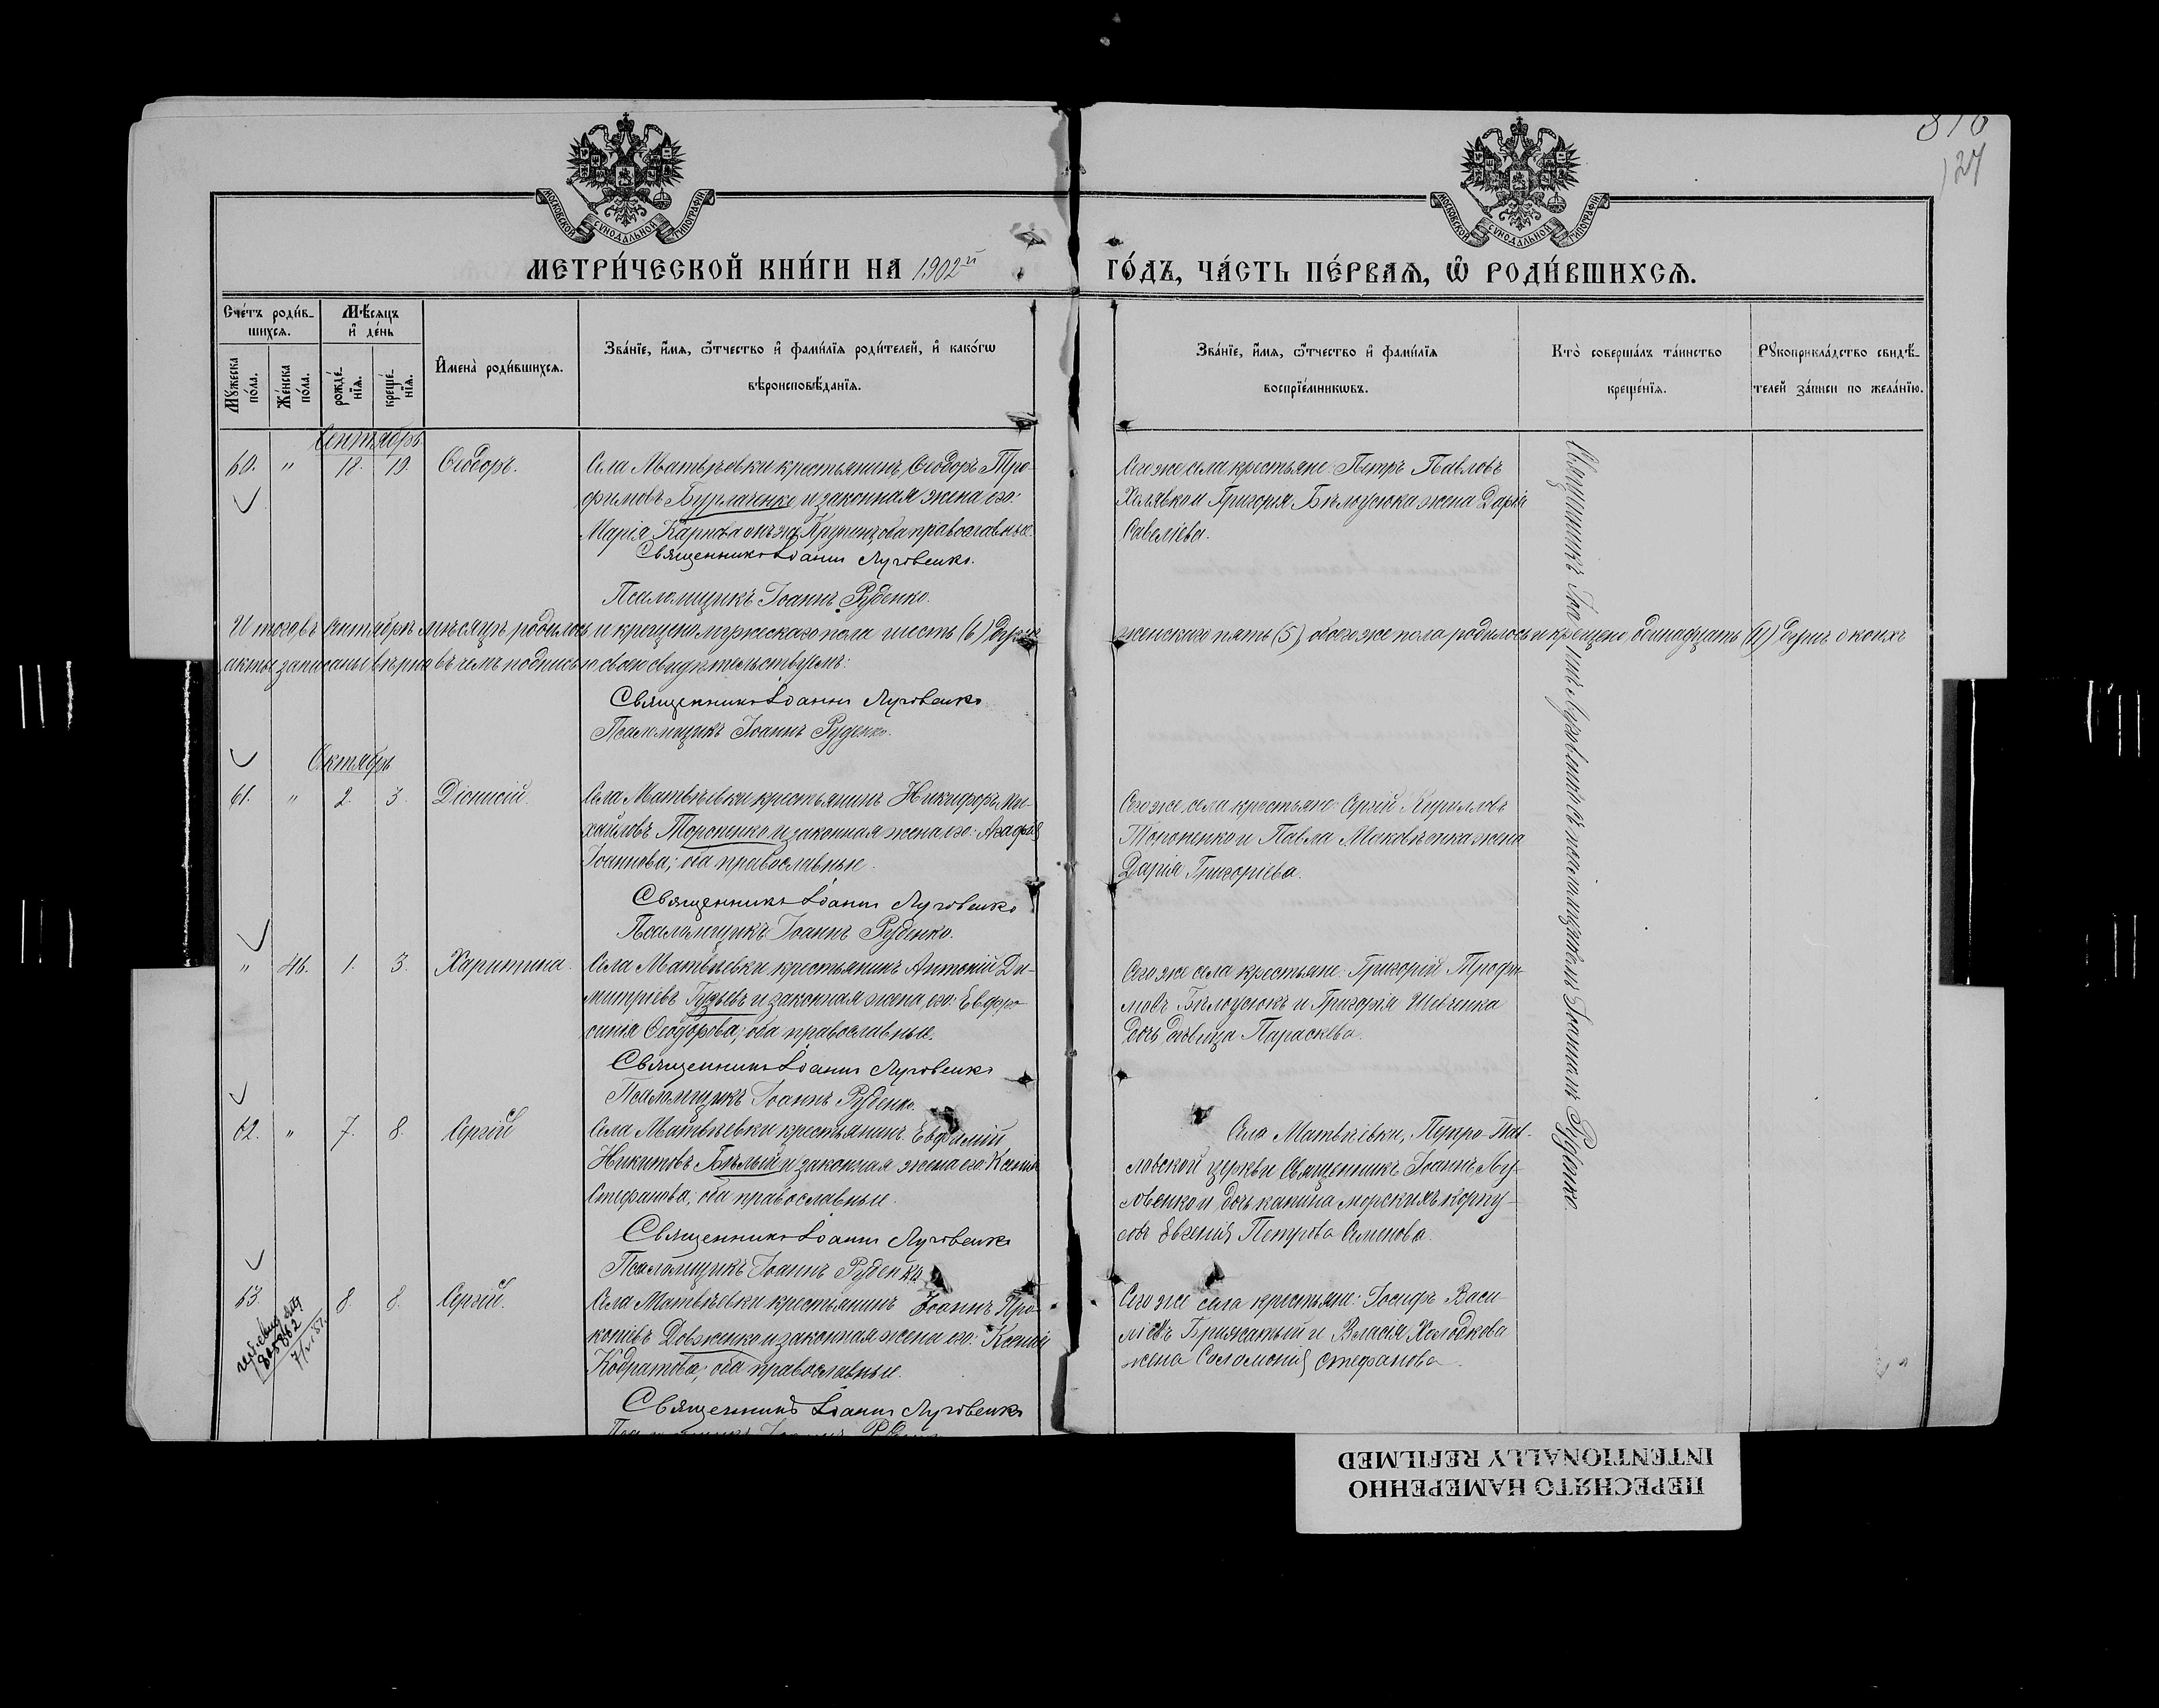 127
МОСКОВСКОЙ СѴНОДАЛЬНОЙ ТИПОГРАФІИ
МОСКОВСКОЙ СѴНОДАЛЬНОЙ ТИПОГРАФІИ
МЕТРИ́ЧЕСКОЙ КНИ́ГИ НА 1902й ГО́ДЪ, ЧА́СТЬ ПЕ́РВАѦ, Ѡ҆ РОДИ́ВШИХСѦ.
Сче́тъ роди́в-
шихсѧ.
Мꙋжеска по́ла.
Же́нска по́ла.
Мѣ́сѧцъ
и҆ де́нь
рожде́-
нїѧ.
креще́-
нїѧ.
И҆мена̀ роди́вшихсѧ.
Зва́нїе, и҆́мѧ, ѻ҆́тчество и҆ фами́лїѧ роди́телей, и҆ како́гѡ
вѣроисповѣ́данїѧ.
Зва́нїе, и҆́мѧ, ѻ҆́тчество и҆ фами́лїѧ
воспрїе́мникѡвъ.
Кто̀ соверша́лъ та́инство
креще́нїѧ.
Рꙋкоприкла́дство свидѣ́-
телей за́писи по жела́нїю.
Сентябрь
60. " 18. 19. Ѳеодоръ.
Села Матвѣевки крестьянинъ Ѳеодоръ Тро-
фимовъ Бурлаченко и законная жена его:
Марія Карпова оба православные.
Священникъ Іоаннъ Луговенко.
Псаломщикъ Іоаннъ Руденко.
Того же села крестьяне: Петръ Павловъ
и Григорія Бѣлоусюка жена Дарія
Савеліева.
Итого въ Сентябрѣ мѣсяцѣ родилось и крещено мужескаго пола шесть (6) душъ женскаго пять (5) обоего же пола родилось и крещено одинадцать (11) душъ о коихъ
акты записаны вѣрно въ чемъ подписью своею свидѣтельствуемъ:
Священникъ Іоаннъ Луговенко
Псаломщикъ Іоаннъ Руденко.
Октябрь
61. " 2. 3. Діонисій.
Села Матвѣевки крестьянинъ Никифоръ Ми-
хайловъ Торопенко и законная жена его: Агафія
Іоаннова; оба православные.
Священникъ Іоаннъ Луговенко
Псаломщикъ Іоаннъ Руденко.
Того же села крестьяне: Сергій Кирилловъ
Торопенко и Павла жена
Дарія Григоріева.
" 46. 1. 3. Харитина.
Села Матвѣевки крестьянинъ Антоній Ди-
митріевъ Гузьевъ и законная жена его: Евфро-
синія Ѳеодорова; оба православные.
Священникъ Іоаннъ Луговенко
Псаломщикъ Іоаннъ Руденко.
Того же села крестьяне: Григорій Трофи-
мовъ Бѣлоусюкъ и Григорія Шевченка
дочь дѣвица Параскева.
62. " 7. 8. Сергій
Села Матвѣевки крестьянинъ Евфимій
Никитовъ Бѣлый и законная жена его: Ксенія
Стефанова; оба православные.
Священникъ Іоаннъ Луговенко
Псаломщикъ Іоаннъ Руденко
Села Матвѣевки, Петро-Пав-
ловской церкви Священникъ Іоаннъ Лу-
говенко и дочь капитана морскихъ корпу-
совъ Евгенія Петрова Семенова.
63. 8. 8. Сергій.
805862
Села Матвѣевки крестьянинъ Іоаннъ Про-
копіевъ Довженко и законная жена его: Ксенія
Кодратова; оба православные.
Священникъ Іоаннъ Луговенко
Псаломщикъ Іоаннъ Руденко
Того же села крестьяне: Іосифъ Васи-
ліевъ Брижатый и Власія Холодкова
жена Соломонія Стефанова.
Священникъ Іоаннъ Луговенко съ псаломщикомъ Іоанномъ Руденко.
ПЕРЕСНЯТО НАМЕРЕННО
INTENTIONALLY REFILMED